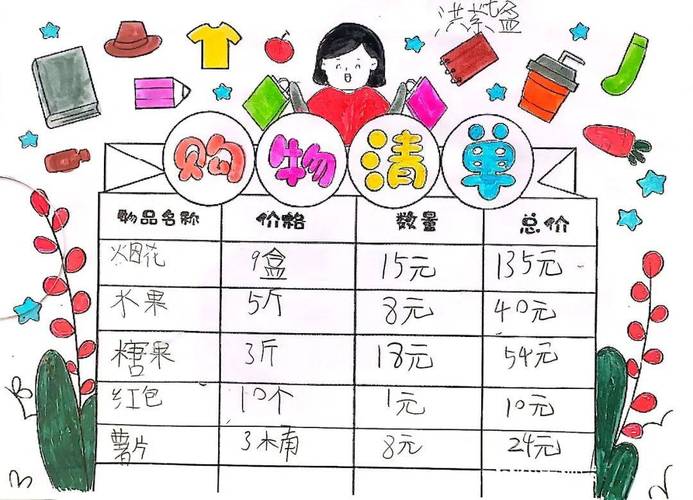 洪紫盈
购物清单
物品名称 价格 数量 总价
烟花 9盒 15元 135元
水果 5斤 8元 40元
糖果 3斤 18元 54元
红包 10个 1元 10元
薯片 3桶 8元 24元